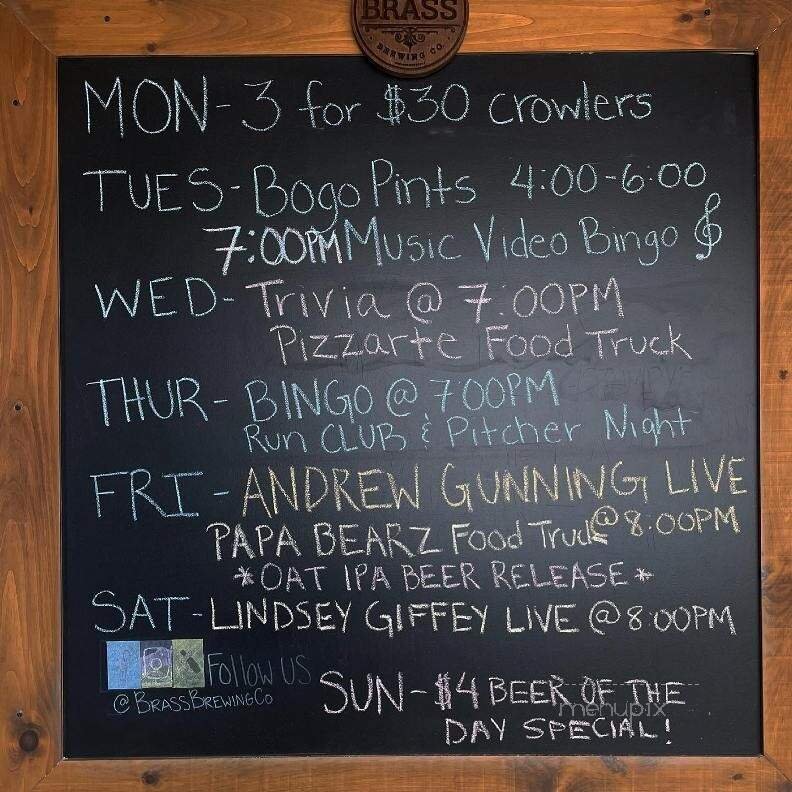 BRASS
BREWING CO.
MON - 3 for $30 crowlers
TUES - Bogo Pints 4:00-6:00
7:00PM Music Video Bingo
WED - Trivia @ 7:00PM
Pizzarte Food Truck
THUR - BINGO @ 700PM
Run CLUB & Pitcher Night
FRI - ANDREW GUNNING LIVE
@ 8:00PM
PAPA BEARZ Food Truck
*OAT IPA BEER RELEASE*
SAT - LINDSEY GIFFEY LIVE @ 8:00PM
Follow US
@BRASSBREWINGCO
SUN - $4 BEER OF THE
DAY SPECIAL!
menupix